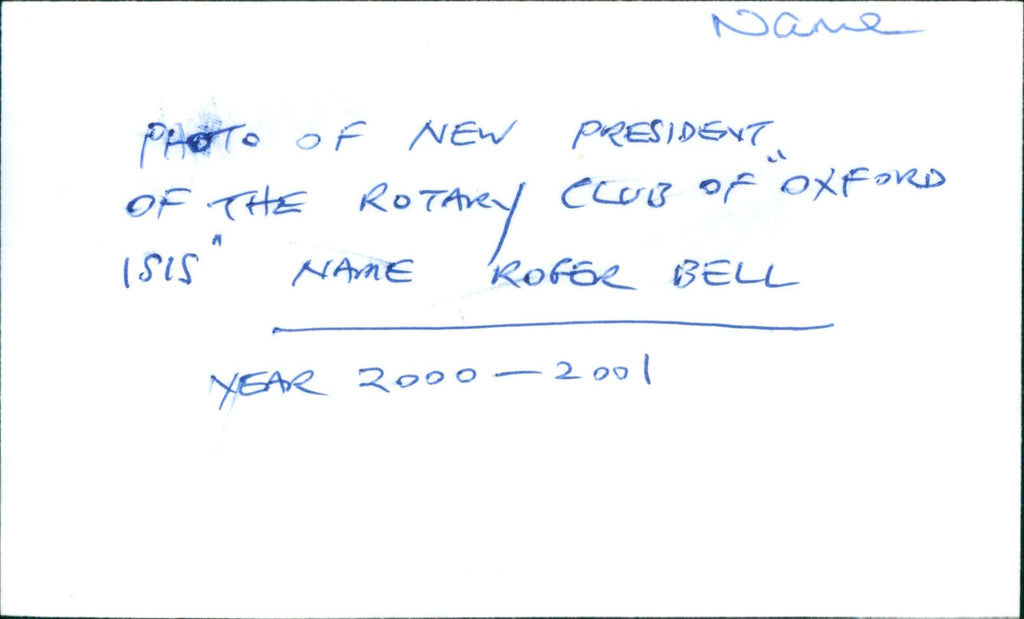 Name
PHOTO OF NEW PRESIDENT
OF THE ROTARY CLUB OF "OXFORD
ISIS" NAME ROGER BELL
YEAR 2000 — 2001